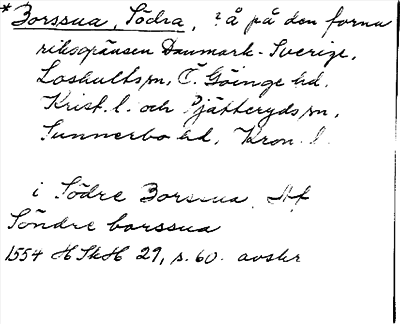 *Borssua, Södra, ? å på den forna
riksgränsen Danmark - Sverige,
Loshults sn, Ö. Göinge hd,
Krist. l. och Pjätteryds sn,
Sunnerbo hd, Kron. l.
i Södre Borssua, Af
Söndre borssua
1554 HSkH 29, s. 60. avskr